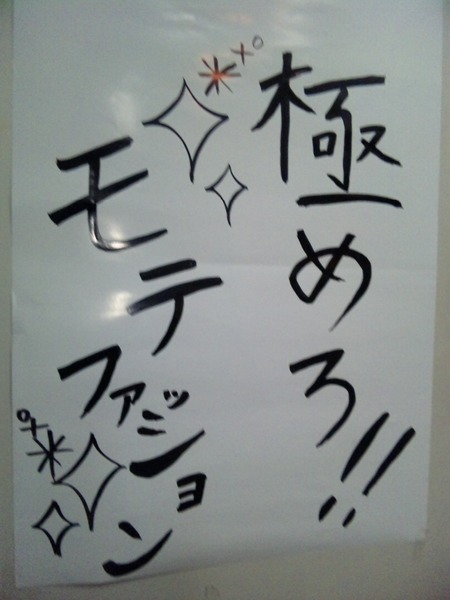 極めろ!!
モテファッション